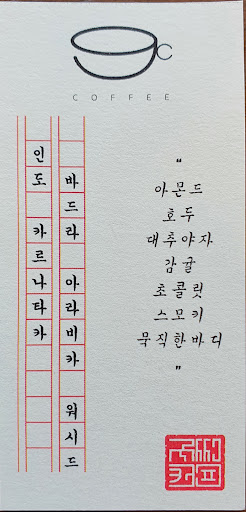 C
COFFEE
인도 카르나타카
바드라 아라비카 워시드
“
아몬드
호두
대추야자
감귤
초콜릿
스모키
묵직한바디
”